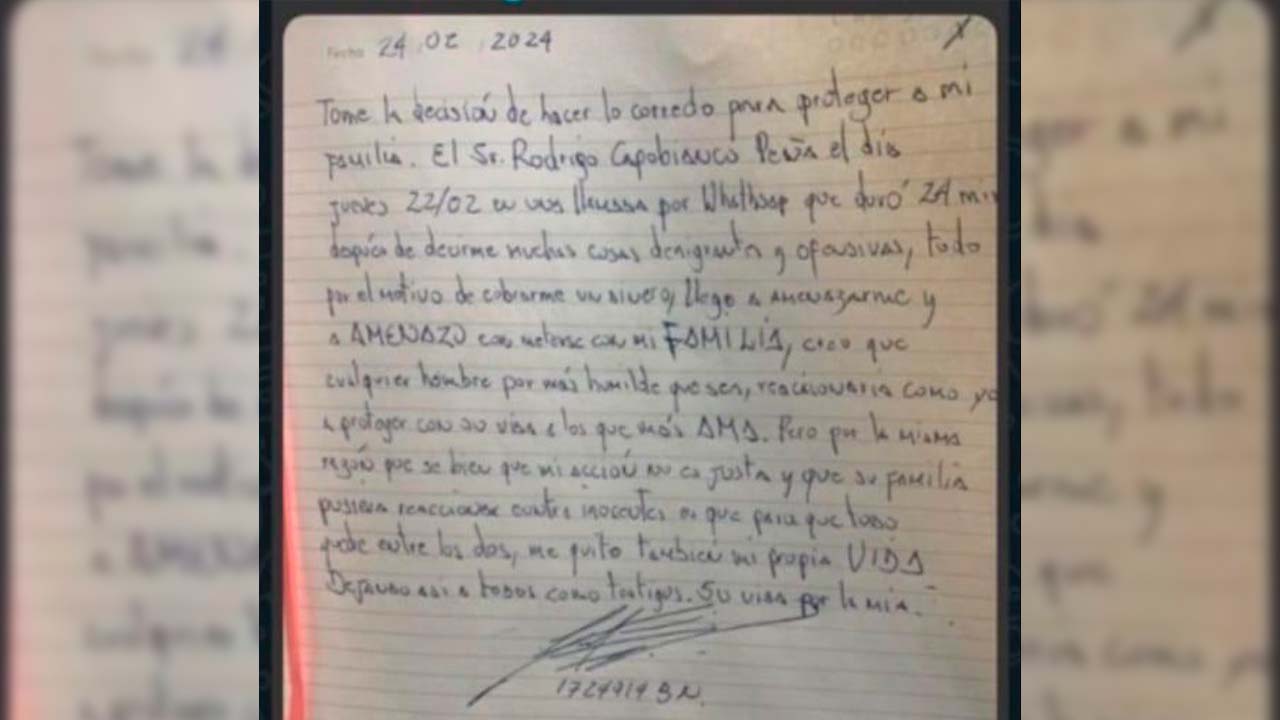 Fecha 24.02.2024
Tome la decisión de hacer lo corredo para proteger a mi
familia. El Sr. Rodrigo Capobianco Peña el día
jueves 22/02 en una llamssa por Whathsap que duró 24 min
después de decirme muchas cosas denigrantes y ofensivas, todo
por el motivo de cobrarme un dinero, llego a amenazarme y
a AMENAZO con meterse con mi FAMILIA, creo que
cualquier hombre por más humilde que sea, reaccionaria como yo
a proteger con su vida a los que más AMA. Pero por la misma
razón que se bien que mi acción no es justa y que su familia
pudiera reaccionar contra inocentes es que para que todo
quede entre los dos, me quito también mi propia VIDA
Dejando asi a todos como testigos. Su vida por la mia.